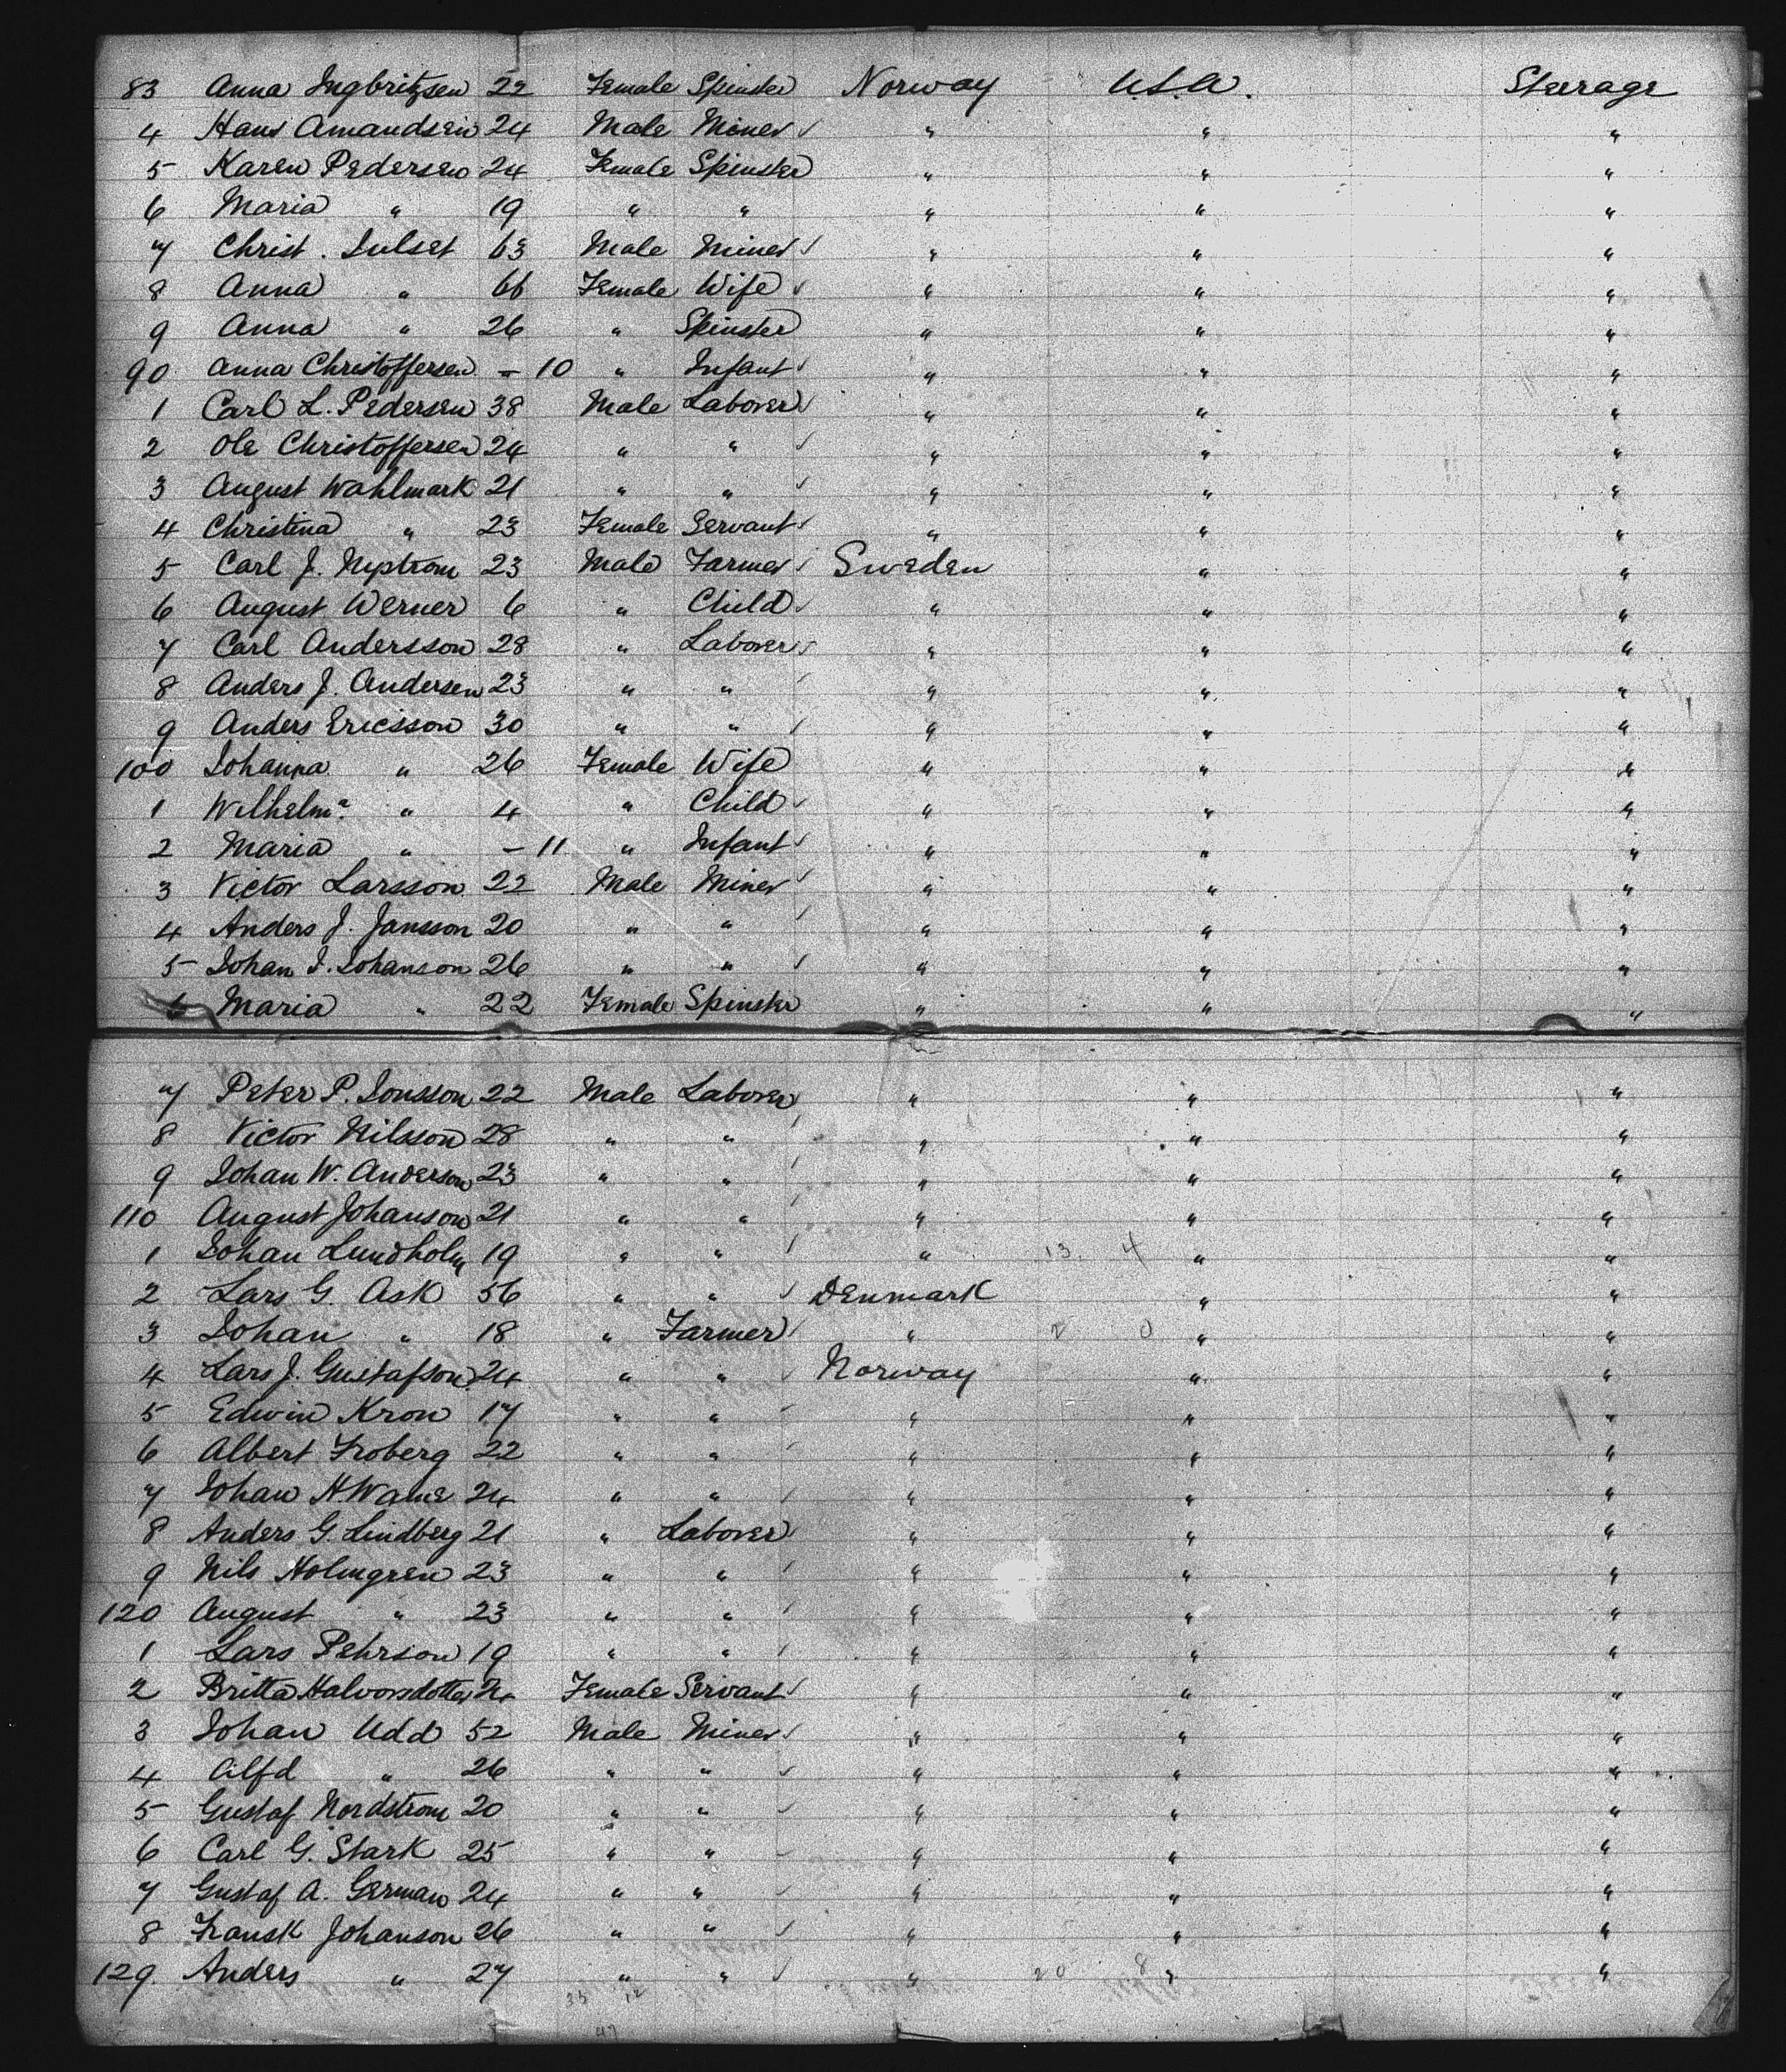 83 Anna Ingbritzsen 22 Female Spinster Norway U.S.A. Steerage
4 Hans Amandsen 24 Male Miner " " "
5 Karen Pedersen 24 Female Spinster " " "
6 Maria " 19 " " " " "
7 Christ. Sulset 63 Male Miner " " "
8 Anna " 66 Female Wife " " "
9 Anna " 26 " Spinster " " "
90 Anna Christoffersen - 10 " Infant " " "
1 Carl L. Pedersen 38 Male Laborer " " "
2 Ole Christoffersen 24 " " " " "
3 August Wahlmark 21 " " " " "
4 Christina " 23 Female Servant " " "
5 Carl J. Nystrom 23 Male Farmer Sweden " "
6 August Werner 6 " Child " " "
7 Carl Andersson 28 " Laborer " " "
8 Anders J. Andersen 23 " " " " "
9 Anders Ericsson 30 " " " " "
100 Johanna " 26 Female Wife " " "
1 Wilhelmª " 4 " Child " " "
2 Maria " - 11 " Infant " " "
3 Victor Larsson 22 Male Miner " " "
4 Anders J. Jansson 20 " " " " "
5 Johan J. Johanson 26 " " " " "
6 Maria " 22 Female Spinster " " "
7 Peter P. Jonsson 22 Male Laborer " " "
8 Victor Nilsson 28 " " " " "
9 Johan W. Anderson 23 " " " " "
110 August Johanson 21 " " " " "
1 Johan Lundholm 19 " " " 13 4 " "
2 Lars G. Ask 56 " " Denmark " "
3 Johan " 18 " Farmer " 2 0 " "
4 Lars J. Gustafson 24 " " Norway " "
5 Edwin Kron 17 " " " " "
6 Albert Froberg 22 " " " " "
7 Johan 24 " " " " "
8 Anders G. Lindberg 21 " Laborer " " "
9 Nils Holmgren 23 " " " " "
120 August " 23 " " " " "
1 Lars Pehrson 19 " " " " "
2 Britta Halvorsdotter 24 Female Servant " " "
3 Johan Udd 52 Male Miner " " "
4 Alfd " 26 " " " " "
5 Gustaf Nordstrom 20 " " " " "
6 Carl G. Stark 25 " " " " "
7 Gustaf A. German 24 " " " " "
8 Fransk Johanson 26 " " " " "
129 Anders " 27 " " " 20 8 " "
35 12
47